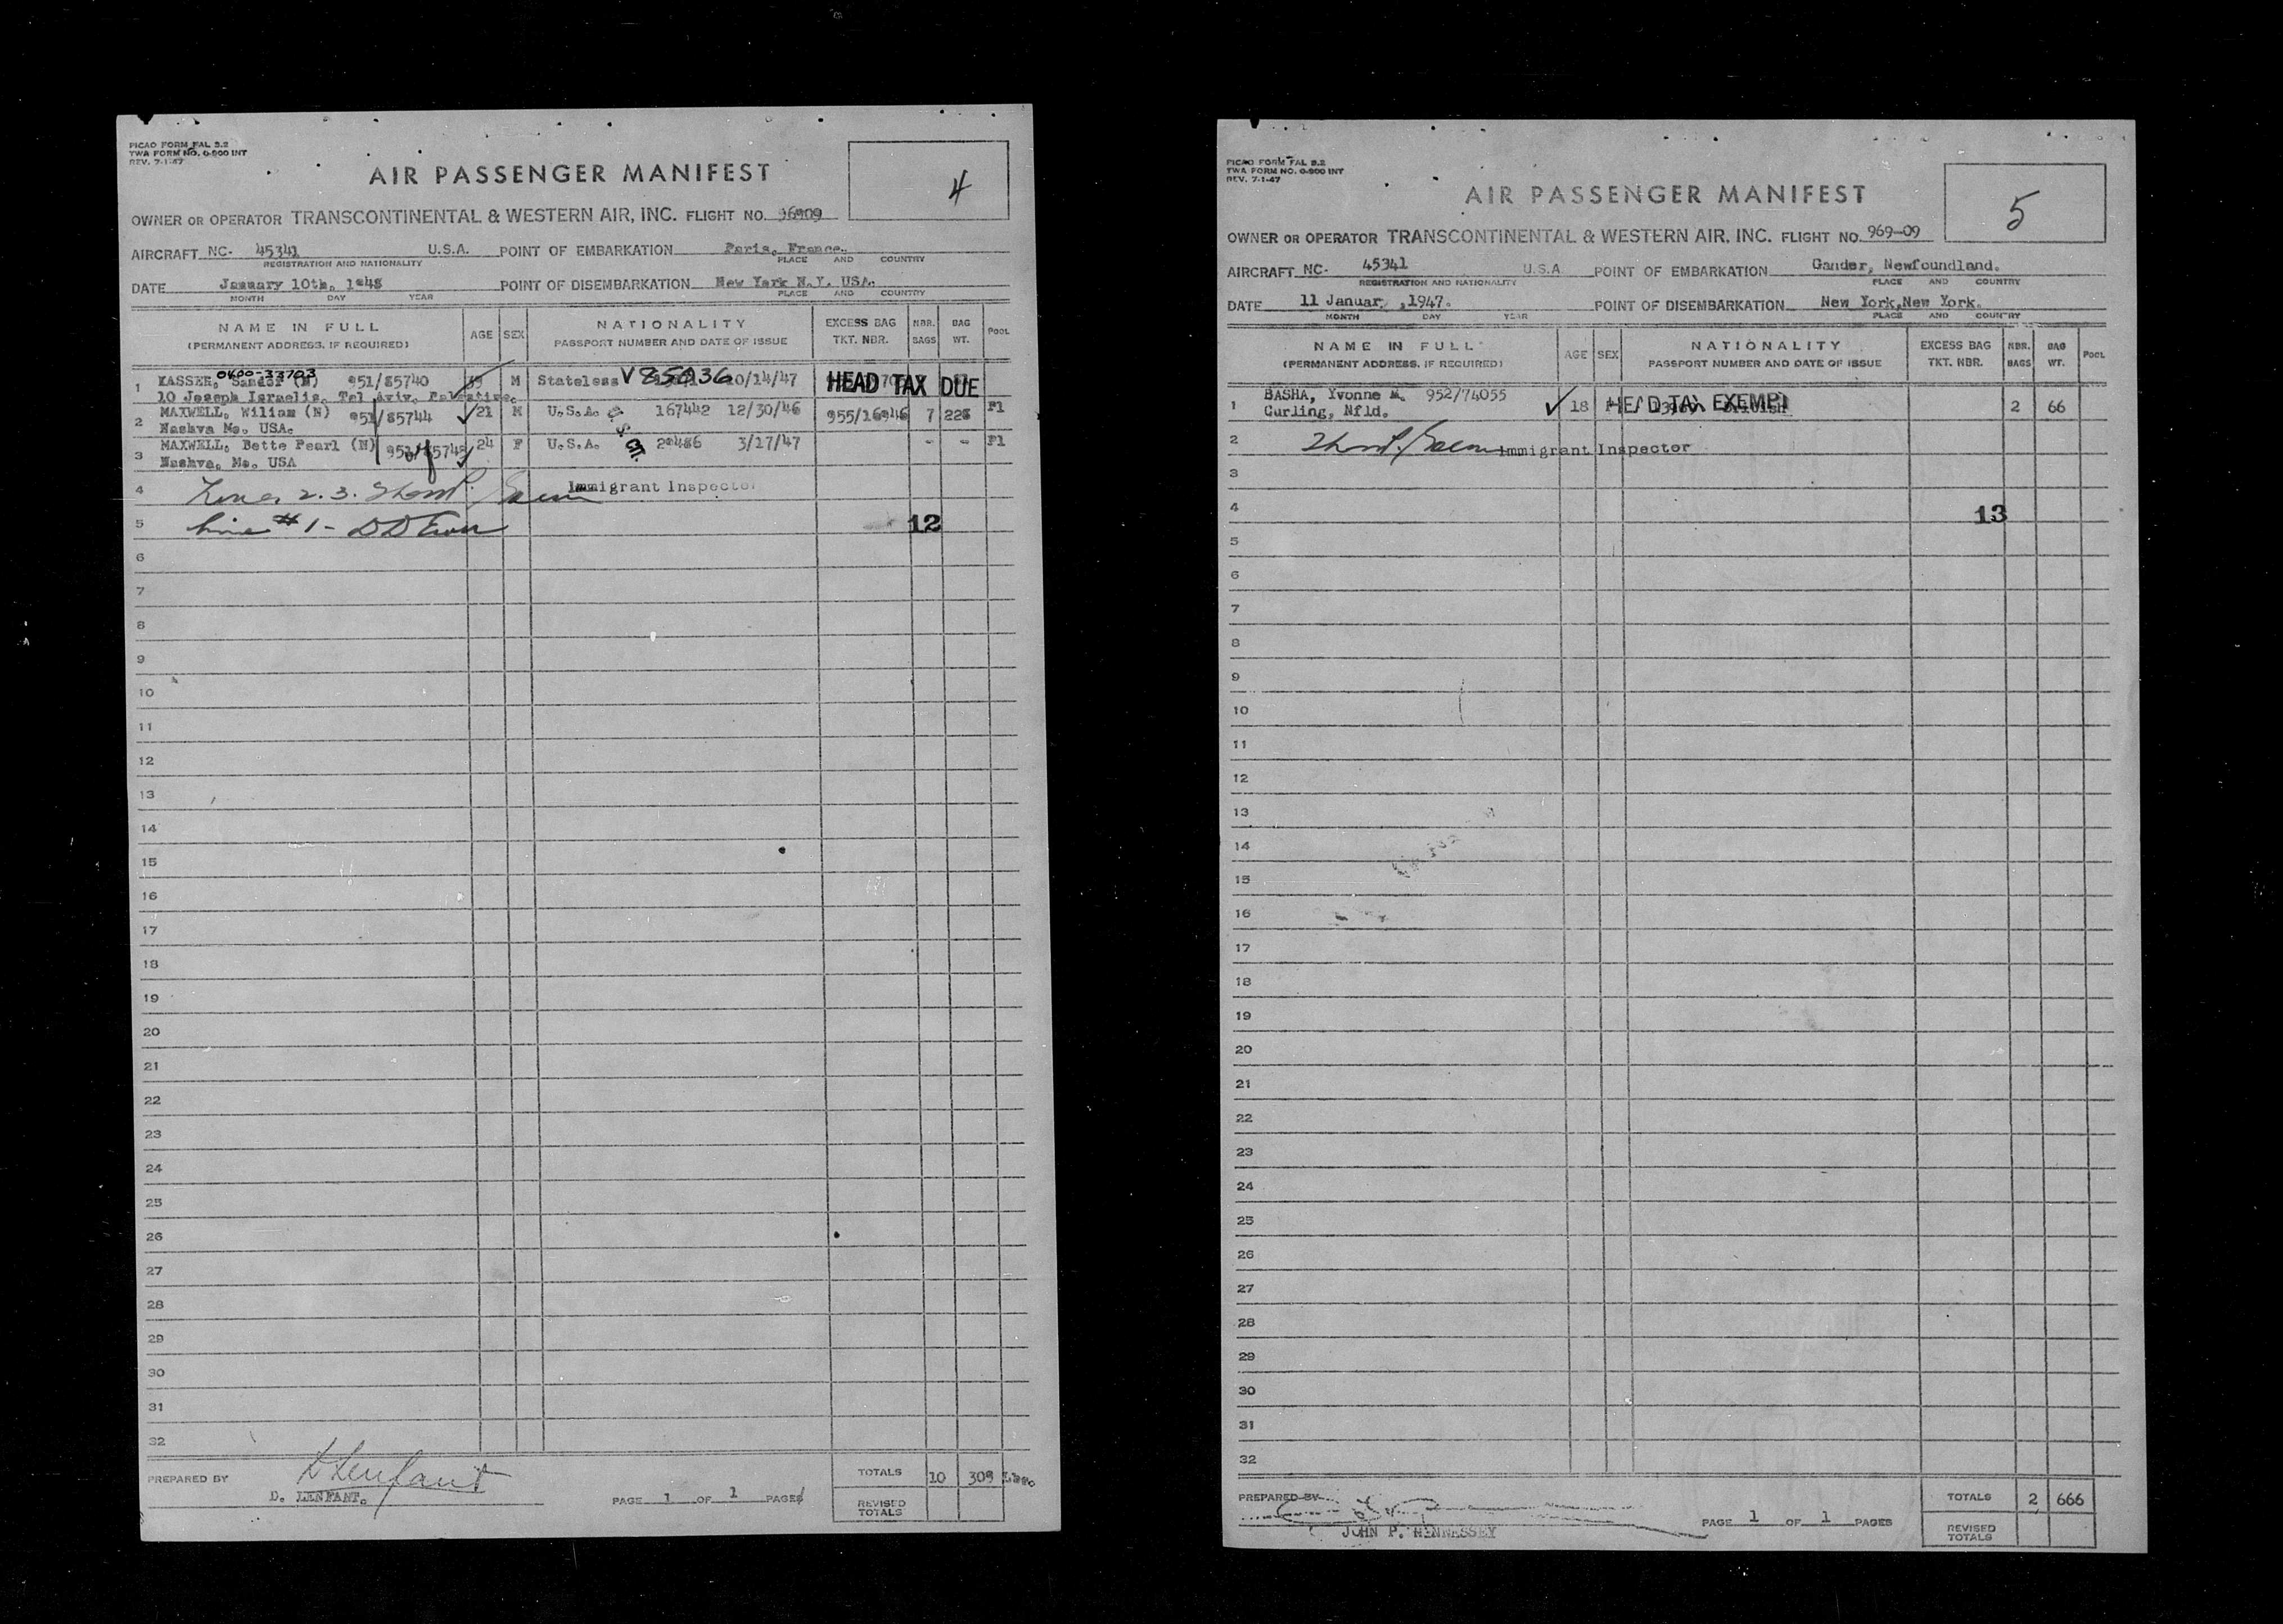 PICAO FORM FAL 3.2
TWA FORM NO. 0-900 INT
REV. 7-1-47
AIR PASSENGER MANIFEST
4
OWNER OR OPERATOR TRANSCONTINENTAL & WESTERN AIR, INC. FLIGHT NO. 96909
AIRCRAFT NC- 45341 U.S.A. POINT OF EMBARKATION Paris, France.
REGISTRATION AND NATIONALITY PLACE AND COUNTRY
DATE January 10th, 1948 POINT OF DISEMBARKATION New York N.Y. USA.
MONTH DAY YEAR PLACE AND COUNTRY
NAME IN FULL AGE SEX NATIONALITY EXCESS BAG NBR. BAG POOL
(PERMANENT ADDRESS, IF REQUIRED) PASSPORT NUMBER AND DATE OF ISSUE TKT. NBR. BAGS WT.
0400-33703
1 KASSER, Sandor (N) 951/85740 M Stateless V85036 10/14/47 HEAD TAX DUE
10 Joseph Israelis, Tel Aviv, Palestine.
2 MAXWELL, Wiliam (N) 951/85744 21 M U.S.A. 167442 12/30/46 955/16946 7 228 Pl
Nashva Mo. USA.
3 MAXWELL, Bette Pearl (N) 951/85745 24 F U.S.A. 20486 3/17/47 - - Pl
Nashva, Mo. USA
4 Lines 2. 3. Immigrant Inspector
5 Line #1 - 12
6
7
8
9
10
11
12
13
14
15
16
17
18
19
20
21
22
23
24
25
26
27
28
29
30
31
32
PREPARED BY D Lenfant TOTALS 10 309 Lbs.
D. LENFANT. PAGE 1 OF 1 PAGES
REVISED
TOTALS
PICAO FORM FAL 3.2
TWA FORM NO. 0-900 INT
REV. 7-1-47
AIR PASSENGER MANIFEST
5
OWNER OR OPERATOR TRANSCONTINENTAL & WESTERN AIR, INC. FLIGHT NO. 969-09
AIRCRAFT NC- 45341 U.S.A. POINT OF EMBARKATION Gander, Newfoundland.
REGISTRATION AND NATIONALITY PLACE AND COUNTRY
DATE 11 Januar ,1947. POINT OF DISEMBARKATION New York,New York.
MONTH DAY YEAR PLACE AND COUNTRY
NAME IN FULL AGE SEX NATIONALITY EXCESS BAG NBR. BAG POOL
(PERMANENT ADDRESS, IF REQUIRED) PASSPORT NUMBER AND DATE OF ISSUE TKT. NBR. BAGS WT.
1 BASHA, Yvonne M. 952/74055 18 HEAD TAX EXEMPT 2 66
Curling, Nfld.
2 Immigrant Inspector
3
4 13
5
6
7
8
9
10
11
12
13
14
15
16
17
18
19
20
21
22
23
24
25
26
27
28
29
30
31
32
PREPARED BY TOTALS 2 666
JOHN P. HENNESSEY PAGE 1 OF 1 PAGES
REVISED
TOTALS